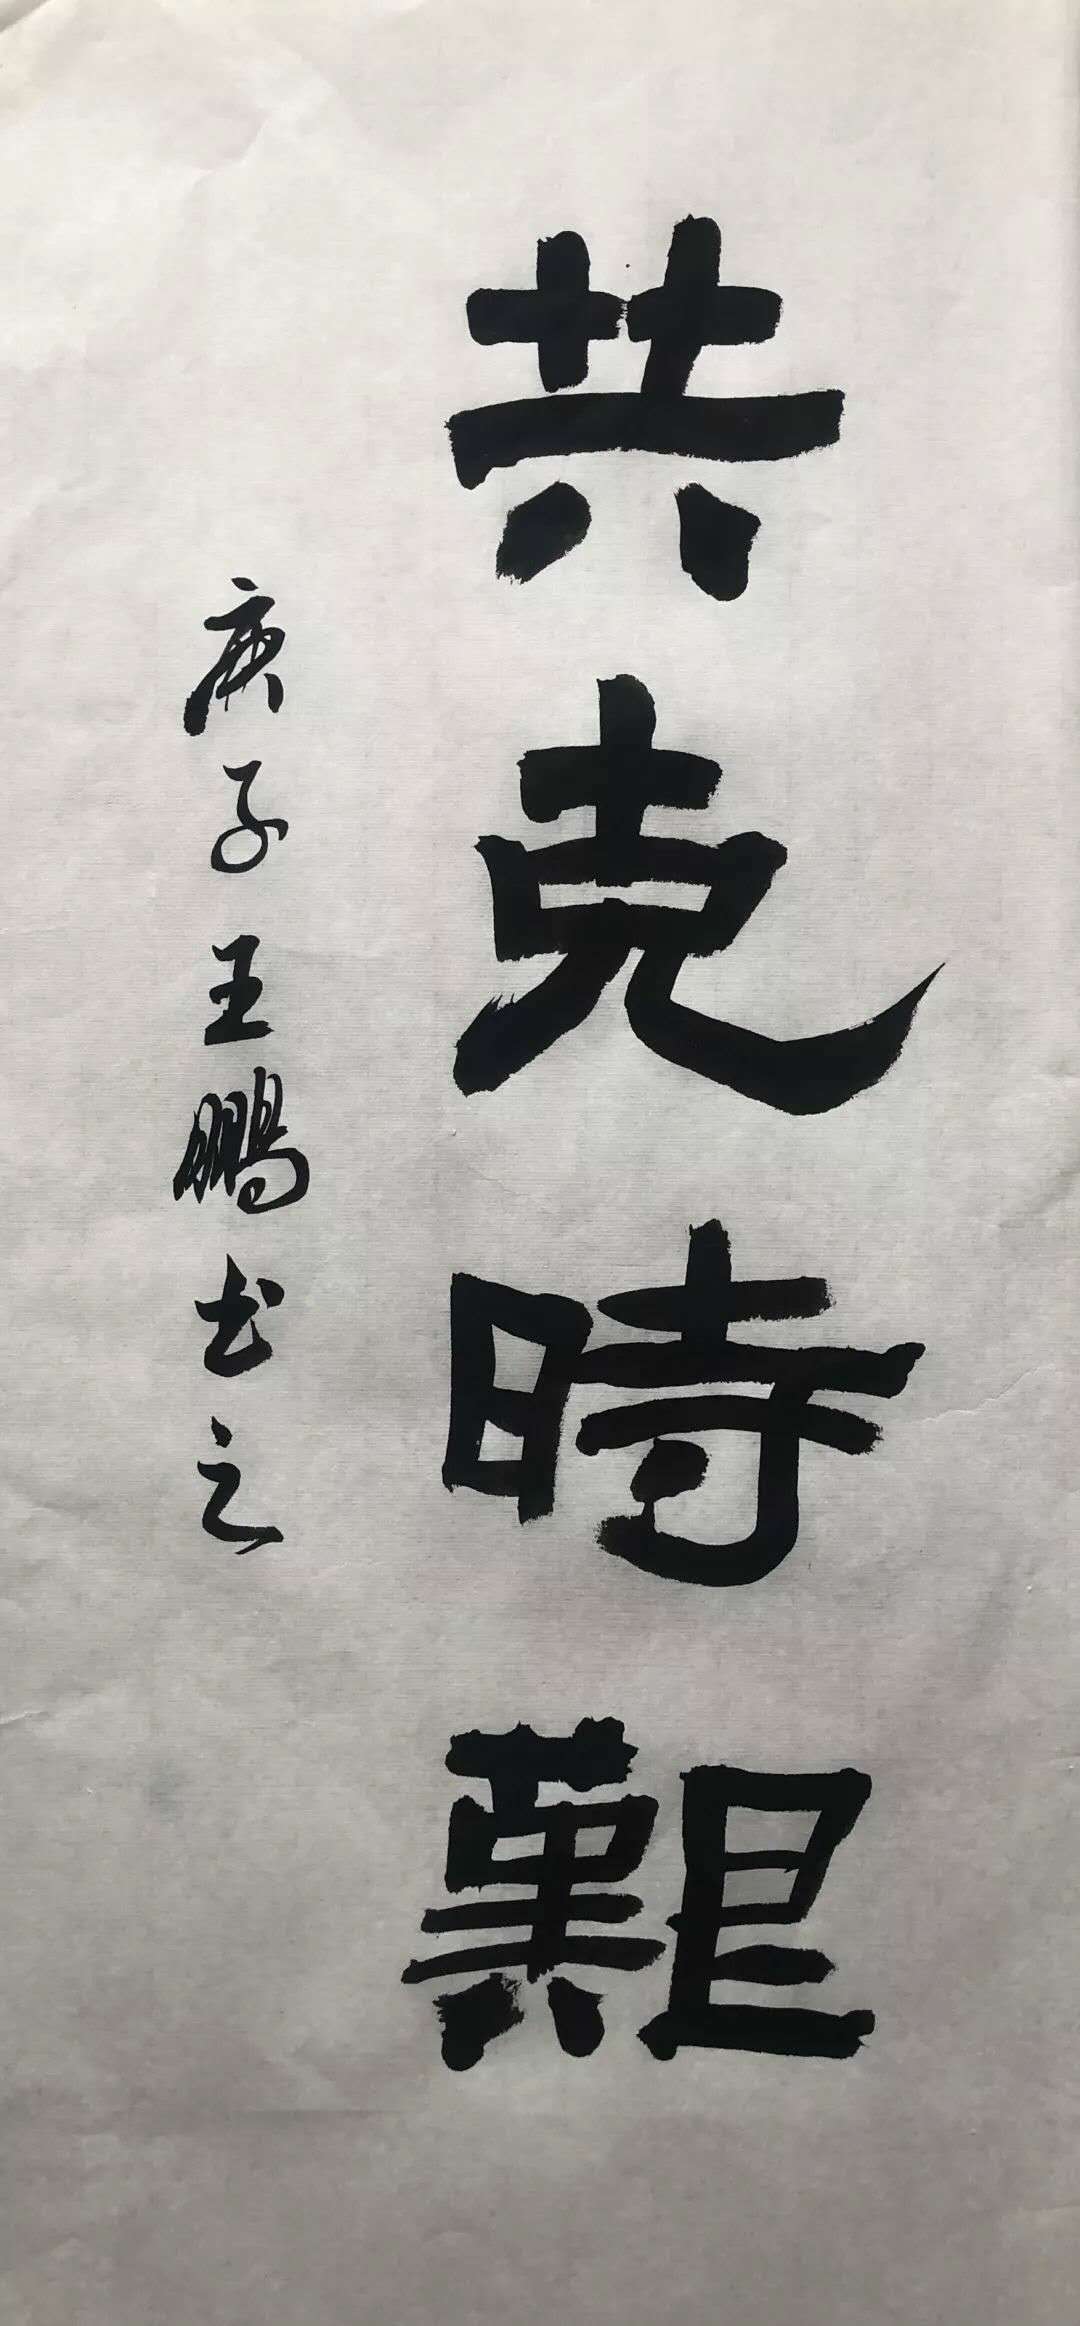 共克時艱
庚子王鹏书之